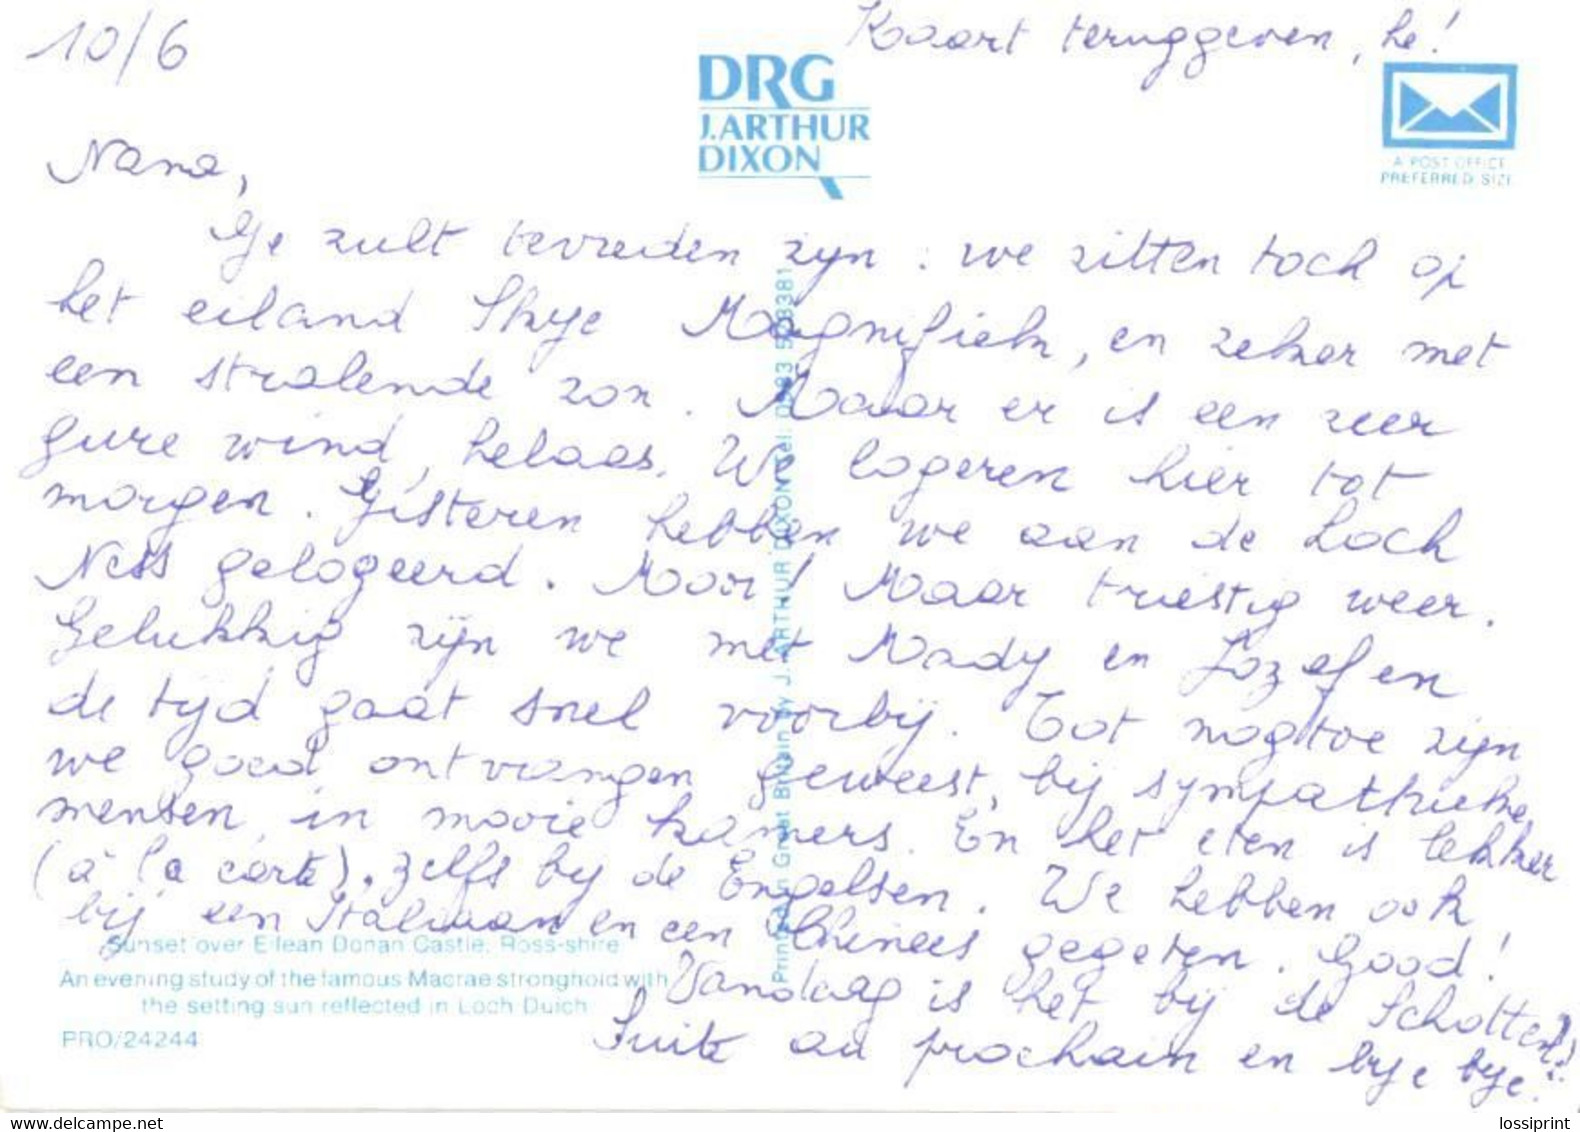 10/6
Kaart teruggeven, he!
DRG
J. ARTHUR
DIXON
A POST OFFICE
PREFERRED SIZE
Nana,
Ge zult tevreden zijn : we zitten toch op
het eiland Skye Magnifiek, en zeker met
een stralende zon. Maar er is een zeer
gure wind, helaas. We logeren hier tot
morgen. Gisteren hebben we aan de Loch
Ness gelogeerd. Mooi! Maar triestig weer.
Gelukkig zijn we met Mady en Jozef en
de tijd gaat snel voorbij. Tot nogtoe zijn
we goed ontvangen geweest, bij sympathieke
mensen, in mooie kamers. En het eten is lekker
(à la carte). Zelfs bij de Engelsen. We hebben ook
bij een Italiaan en een Chinees gegeten. Good!
Vandaag is het bij de Schotten!
Suite au prochain en bye bye!
Sunset over Eilean Donan Castle, Ross-shire
An evening study of the famous Macrae stronghold with
the setting sun reflected in Loch Duich
PRO/24244
Printed in Great Britain by J. ARTHUR DIXON Tel: 0983 523381
lossiprint